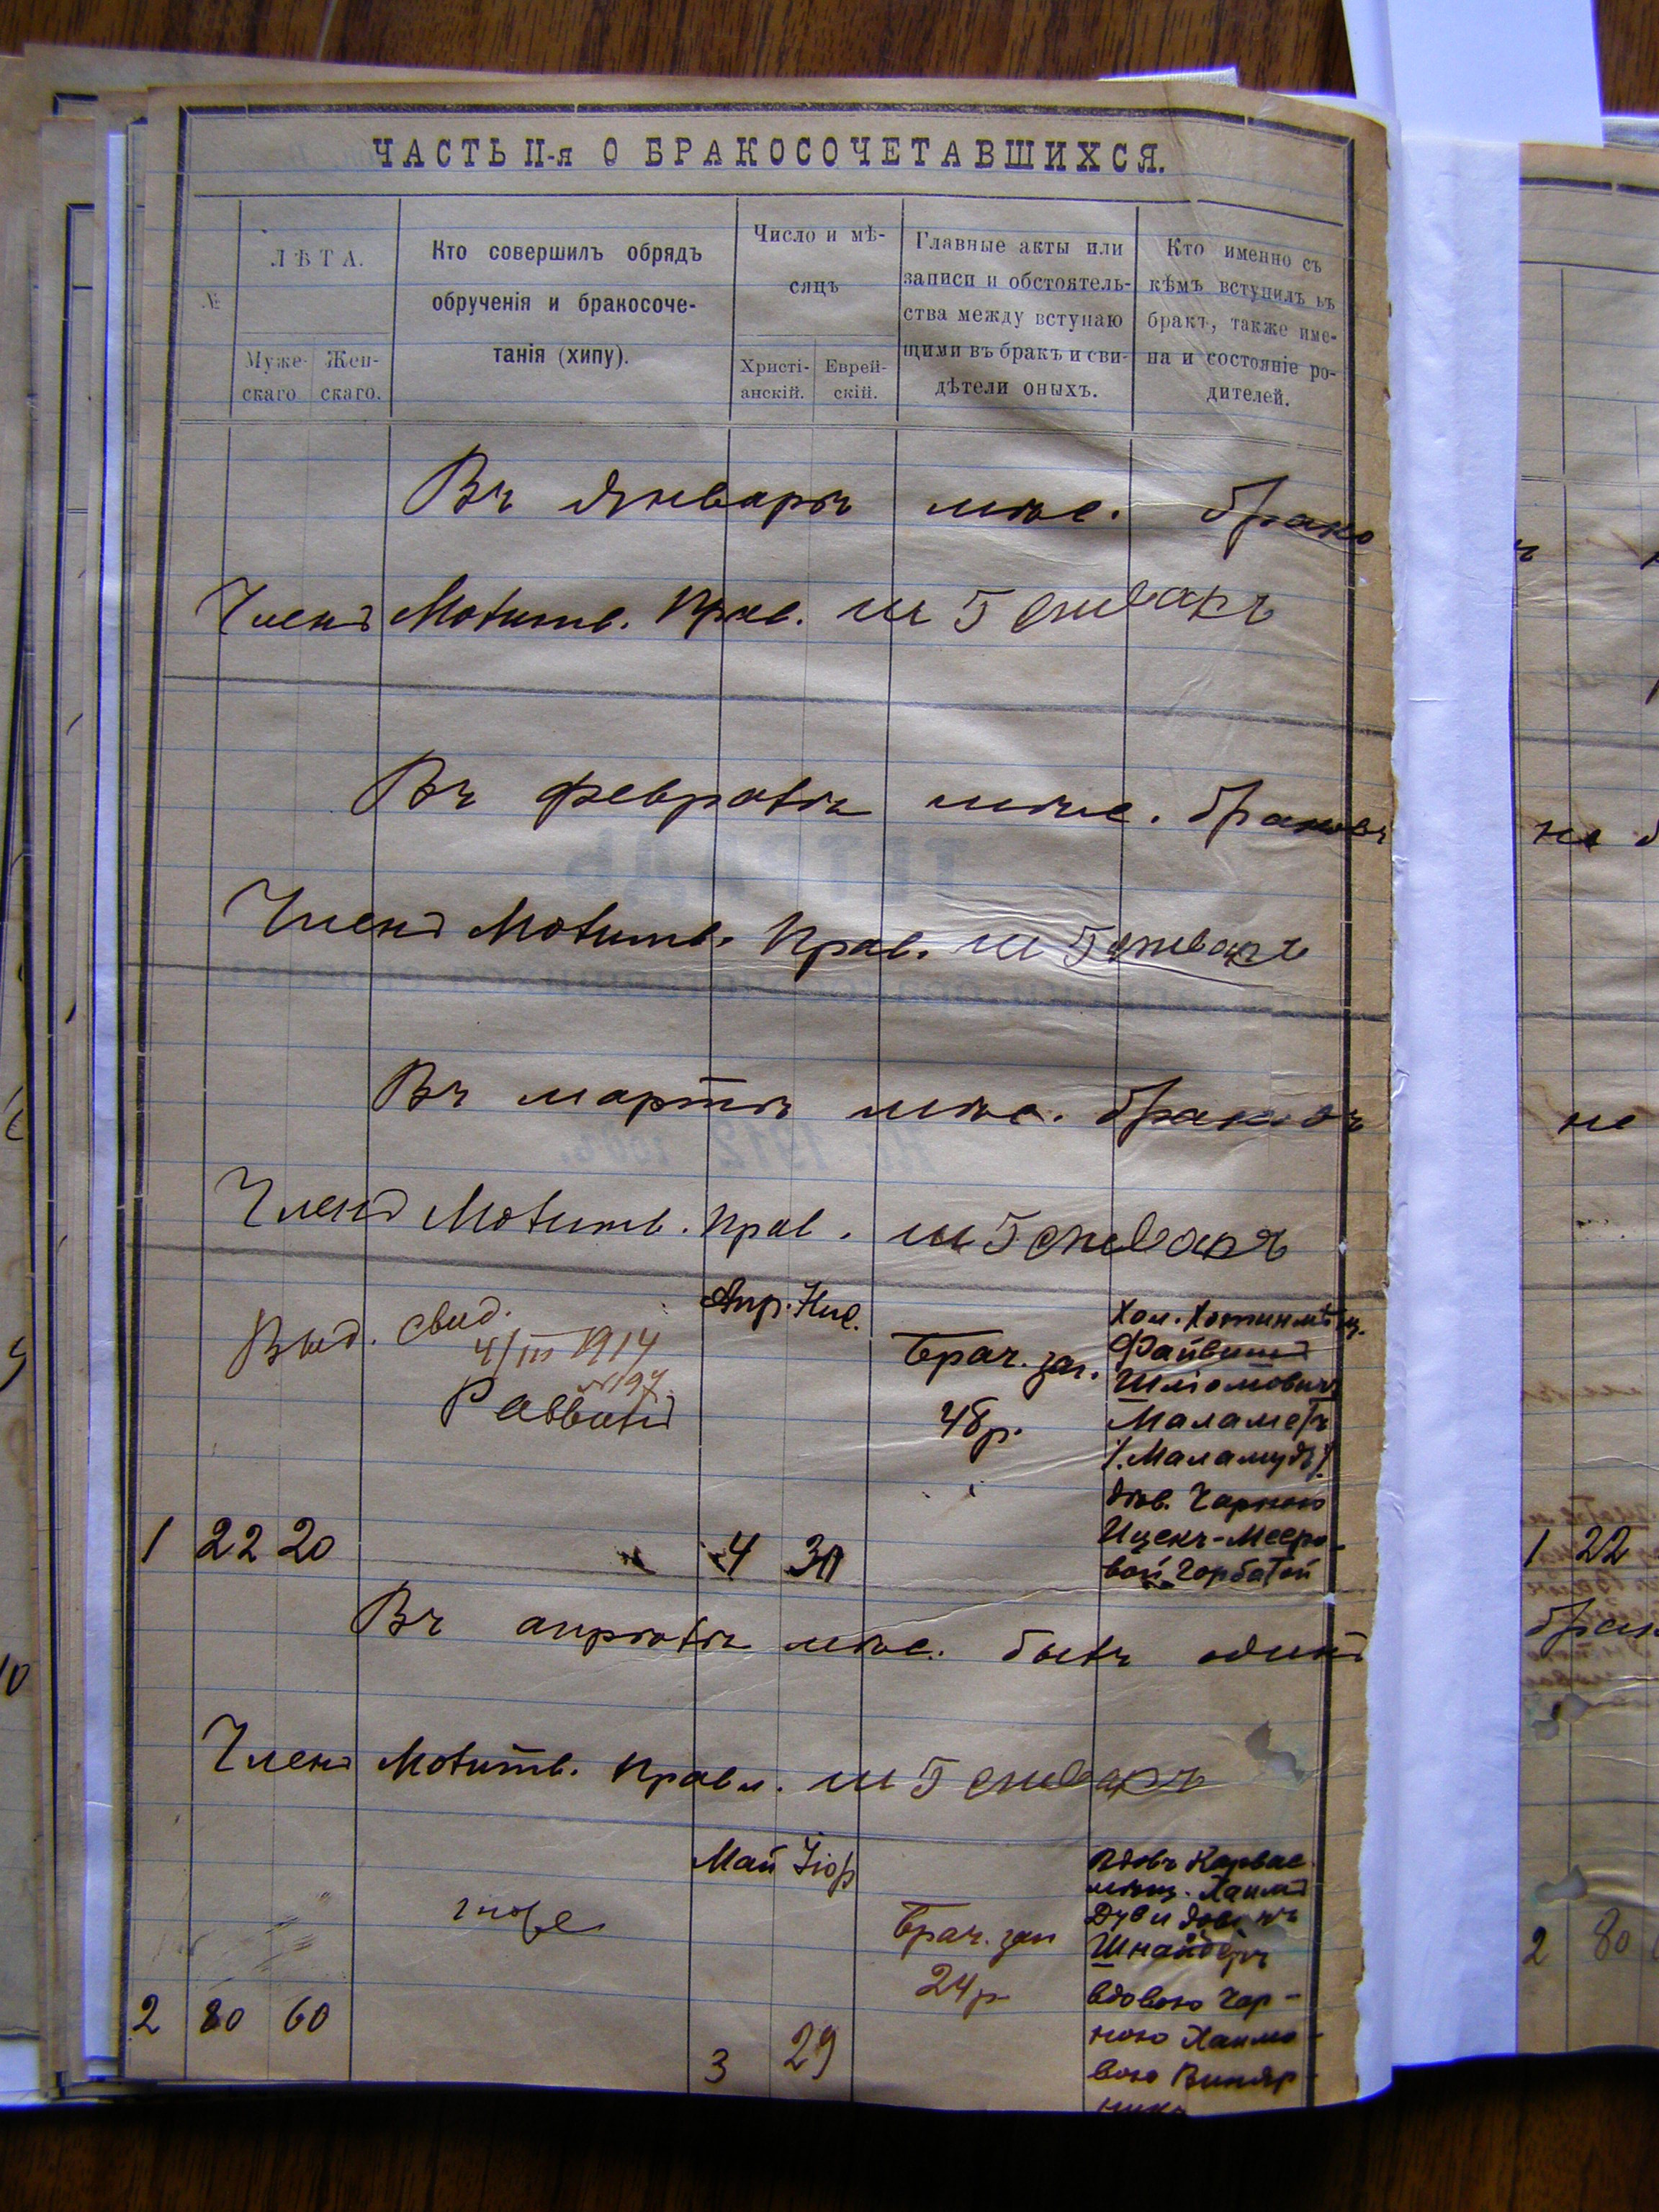 ЧАСТЬ II-я О БРАКОСОЧЕТАВШИХСЯ.
№
ЛѢТА.
Муже-
скаго
Жен-
скаго.
Кто совершилъ обрядъ
обрученія и бракосоче-
танія (хипу).
Число и мѣ-
сяцъ
Христі-
анскій.
Еврей-
скій.
Главные акты или
записи и обстоятель-
ства между вступаю
щими въ бракъ и сви-
дѣтели оныхъ.
Кто именно съ
кѣмъ вступилъ въ
бракъ, также име-
на и состояніе ро-
дителей.
Въ Январѣ мѣс. брако
Членъ Молитв. Прав.
Въ февралѣ мѣс. браковъ
не
Членъ Молитв. Прав.
Въ мартѣ мѣс. браковъ
не
Членъ Молитв. Прав.
Выд. свид.
4/III 1914
№197
Раввинъ
Апр. Нис.
Брач. зап.
48 р.
Хол. Хотин. мѣщ.
Файвишъ
Шліомовичъ
Маламетъ
/.Маламудъ/.
дѣв. Чарною
Ицекъ-Мееро-
вой Горбатой
1 22 20 4 30
1 22
Въ апрѣлѣ мѣс. былъ одинъ
брак
Членъ Молитв. Правл.
Май Іюр
тоже
Брач. зап
24 р
Вдовъ Карвас.
мѣщ. Хаимъ
Дувидовичъ
Шнайдеръ
вдовою Чар-
ною Хаимо-
вою Виняр-
2 80 60 3 29
2 80